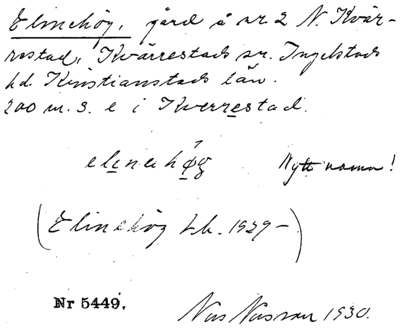 Elinehög, gård å nr 2 N. Kvär-
restad, Kvärrestads sn. Ingelstads
hd Kristianstads län.
200 m. s. e i Kverrestad.
elinehøg Nytt namn!
(Elinehög t.k. 1929-)
Nr 5449. 1930.